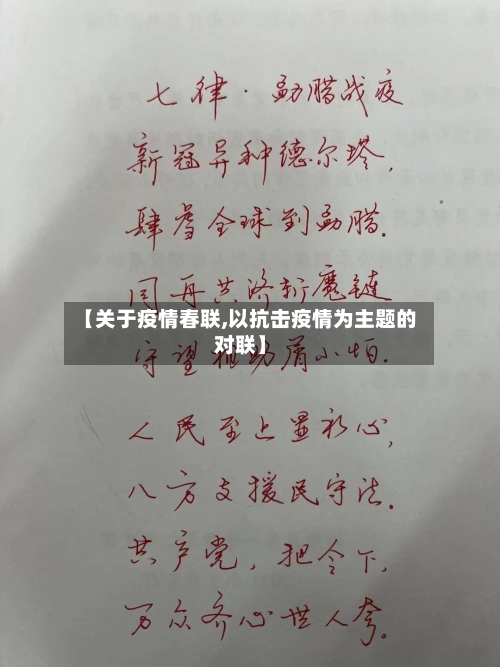 七律·勐腊战疫
新冠异种德尔塔，
肆虐全球到勐腊．
同再共济斩魔链
【关于疫情春联,以抗击疫情为主题的
对联】
守望相助 小怕．
人民至上显初心，
八方支援民守法．
共产党，把令下，
万众齐心世人夸。